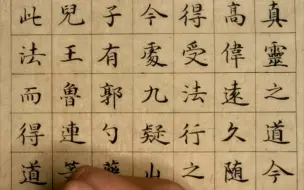 真靈之道今
高偉遠久随
得受法行之
今處九疑山
子有郭勺
兒王魯連
此法而得道